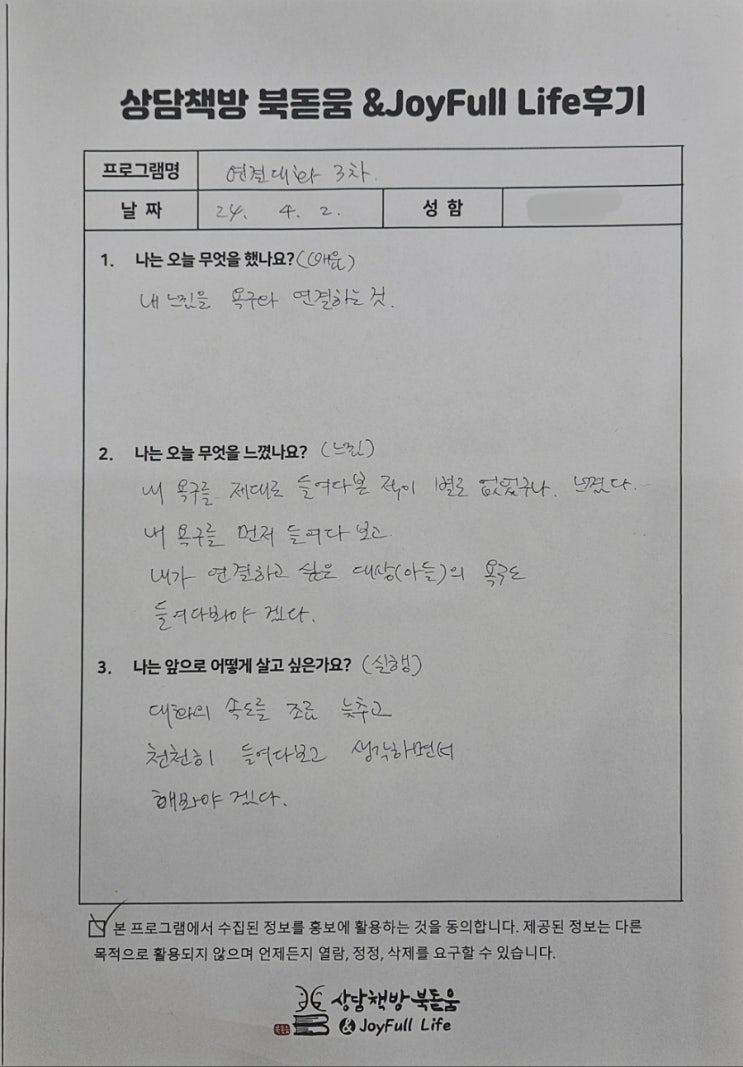 상담책방 북돋움 &JoyFull Life후기
프로그램명 연결대화 3차.
날 짜 24. 4. 2. 성 함
1. 나는 오늘 무엇을 했나요? (배움)
내 느낌을 욕구와 연결하는 것.
2. 나는 오늘 무엇을 느꼈나요? (느낌)
내 욕구를 제대로 들여다본 적이 별로 없었구나. 느꼈다.
내 욕구를 먼저 들여다 보고
내가 연결하고 싶은 대상(아들)의 욕구도
들여다봐야 겠다.
3. 나는 앞으로 어떻게 살고 싶은가요? (실행)
대화의 속도를 조금 늦추고
천천히 들여다보고 생각하면서
해봐야 겠다.
본 프로그램에서 수집된 정보를 홍보에 활용하는 것을 동의합니다. 제공된 정보는 다른
목적으로 활용되지 않으며 언제든지 열람, 정정, 삭제를 요구할 수 있습니다.
상담책방 북돋움
& JoyFull Life